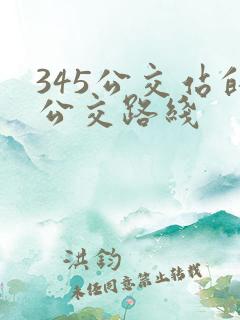 345公交站的
公交路线
洪钧
未经同意禁止转载